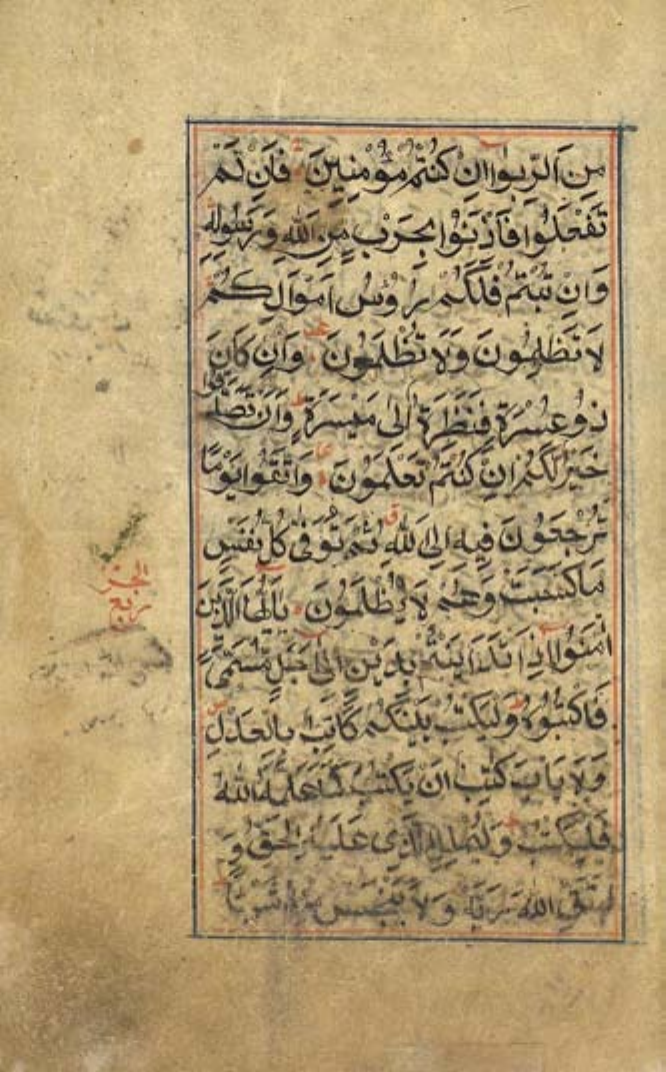 مِنَ الرِّبٰوا اِنْ كُنْتُمْ مُؤْمِنِينَ فَاِنْ لَمْ
تَفْعَلُوا فَأْذَنُوا بِحَرْبٍ مِنَ اللّٰهِ وَرَسُولِهِ
وَاِنْ تُبْتُمْ فَلَكُمْ رُؤُسُ اَمْوَالِكُمْ
لَا تَظْلِمُونَ وَلَا تُظْلَمُونَ وَاِنْ كَانَ
ذُو عُسْرَةٍ فَنَظِرَةٌ اِلٰى مَيْسَرَةٍ وَاَنْ تَصَدَّقُوا
خَيْرٌ لَكُمْ اِنْ كُنْتُمْ تَعْلَمُونَ وَاتَّقُوا يَوْمًا
تُرْجَعُونَ فِيهِ اِلَى اللّٰهِ ثُمَّ تُوَفّٰى كُلُّ نَفْسٍ
مَا كَسَبَتْ وَهُمْ لَا يُظْلَمُونَ يَا اَيُّهَا الَّذِينَ
اٰمَنُوا اِذَا تَدَايَنْتُمْ بِدَيْنٍ اِلٰى اَجَلٍ مُسَمًّى
فَاكْتُبُوهُ وَلْيَكْتُبْ بَيْنَكُمْ كَاتِبٌ بِالْعَدْلِ
وَلَا يَأْبَ كَاتِبٌ اَنْ يَكْتُبَ كَمَا عَلَّمَهُ اللّٰهُ
فَلْيَكْتُبْ وَلْيُمْلِلِ الَّذِى عَلَيْهِ الْحَقُّ وَ
لْيَتَّقِ اللّٰهَ رَبَّهُ وَلَا يَبْخَسْ مِنْهُ شَيْئًا
ربع